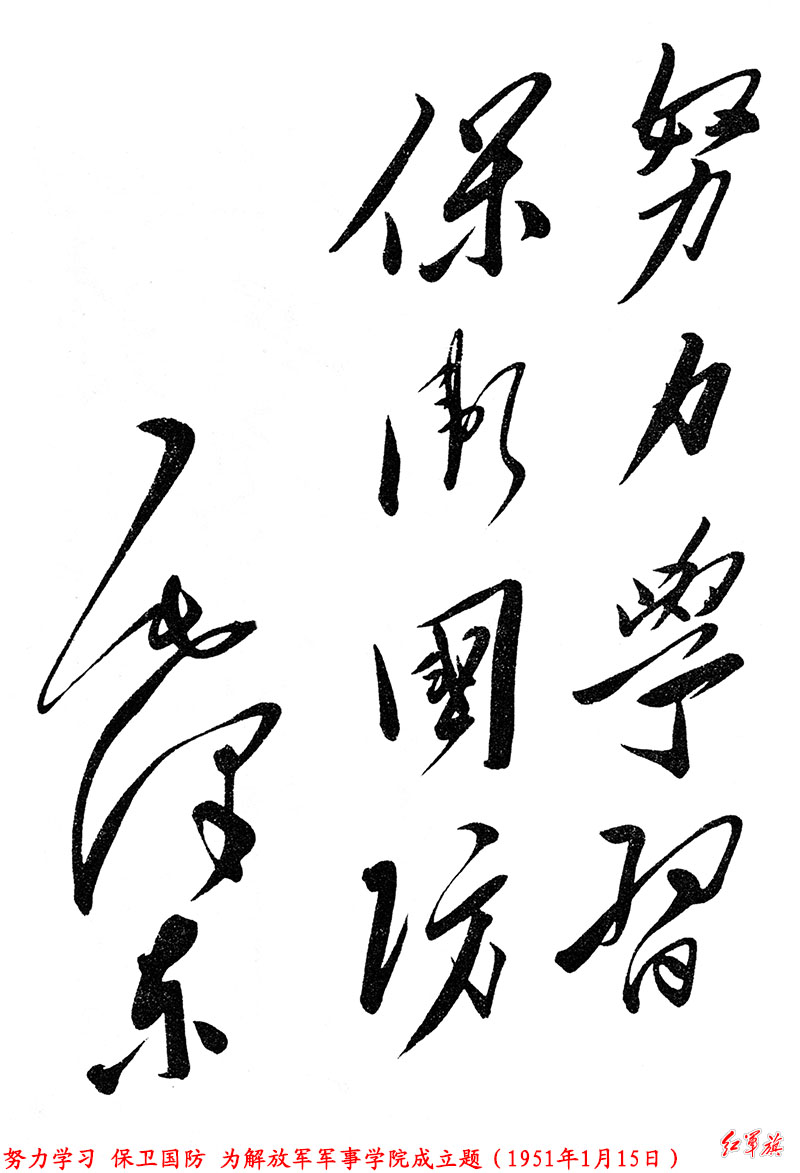 努力學習
保衛國防
毛澤东
努力学习 保卫国防 为解放军军事学院成立题（1951年1月15日）
红军旗